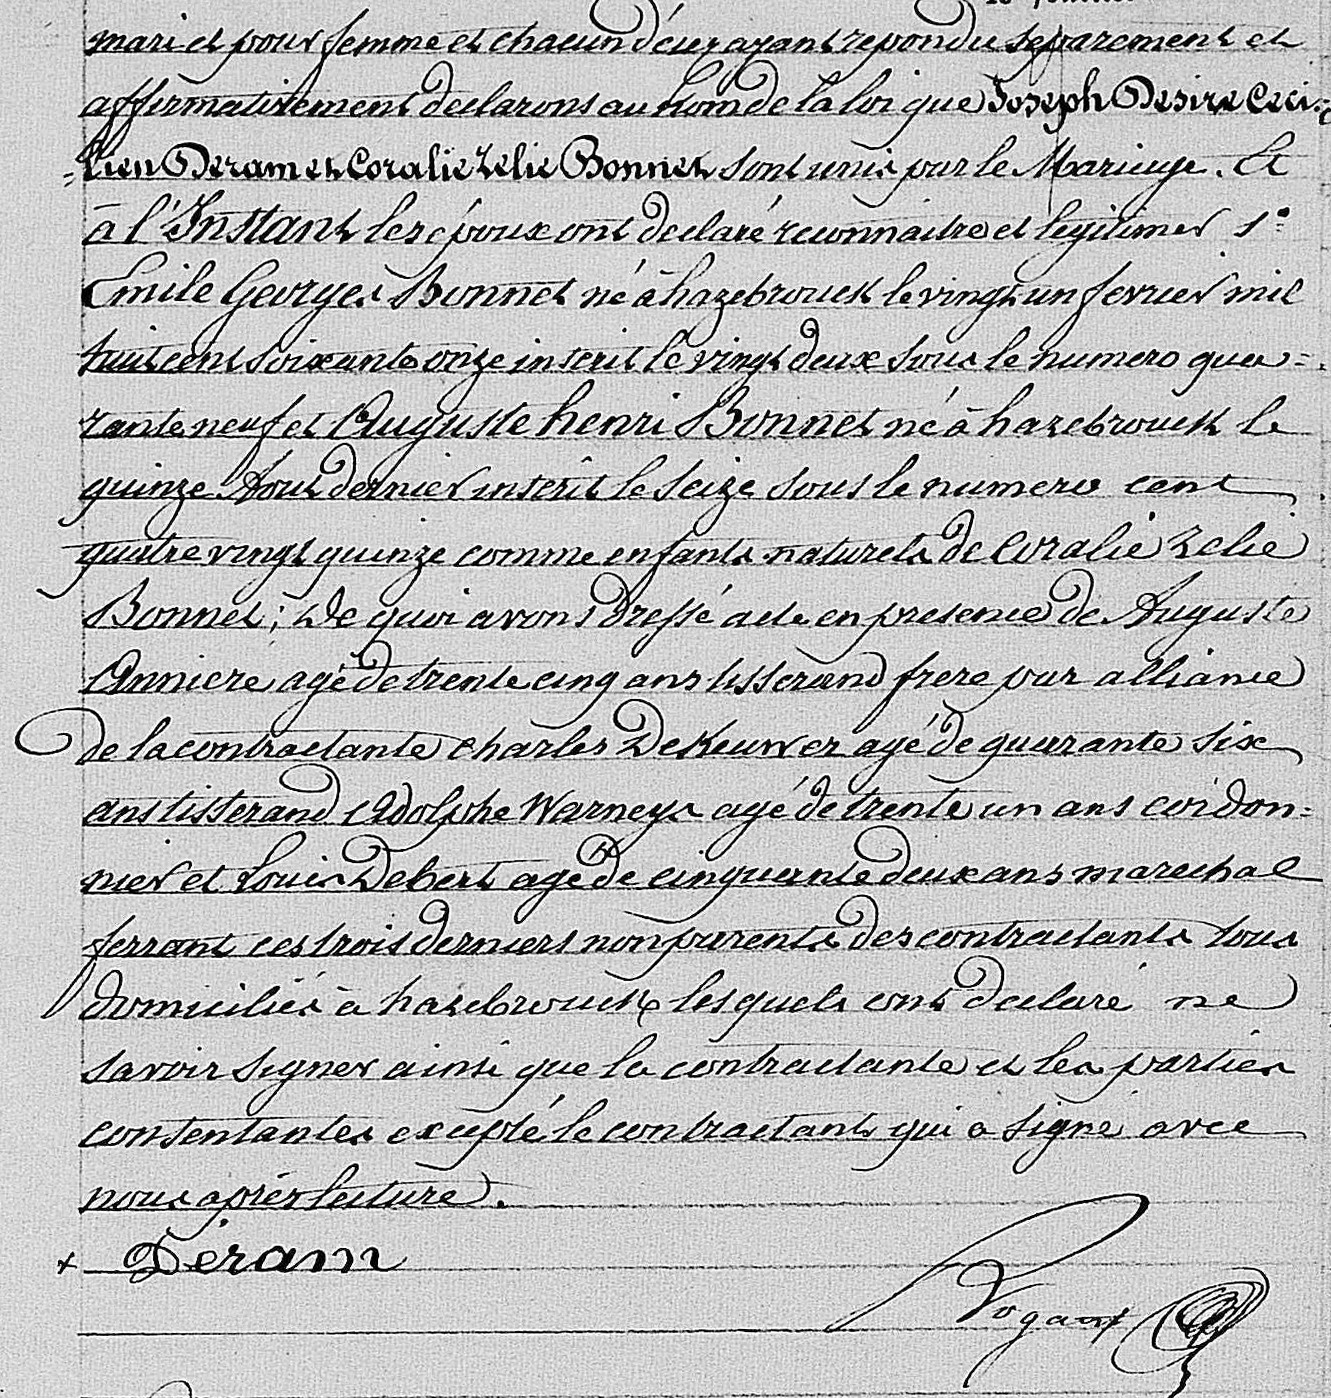 mari et pour femme et chacun d'eux ayant repondu separement et
affirmativement declarons au Nom de la loi que Joseph Desire Ceci-
=lien Deram et Coralie Zelie Bonnet sont unis par le Mariage. Et
à l'Instant les époux ont declaré reconnaitre et legitimer 1°
Emile Georges Bonnet né à hazebrouck le vingt un fevrier mil
huit cent soixante onze inscrit le vingt deux sous le numero qua=
rante neuf et Auguste henri Bonnet né à hazebrouck le
quinze Aout dernier inscrit le Seize sous le numero cent
quatre vingt quinze comme enfants naturels de Coralie Zelie
Bonnet; De quoi avons Dressé acte en presence de Auguste
Anniere agé de trente cinq ans tisserand frere par alliance
de la contractante Charles DeKeuwer agé de quarante six
ans tisserand Adolphe Warneys agé de trente un ans cordon=
nier et Louis Debert agé de cinquante deux ans marechal
ferrant ces trois derniers non parents des contractants tous
domiciliés à hazebrouck lesquels ont declaré ne
savoir signer ainsi que la contractante et les parties
consentantes excepté le contractant qui a signé avec
nous après lecture.
x Déram